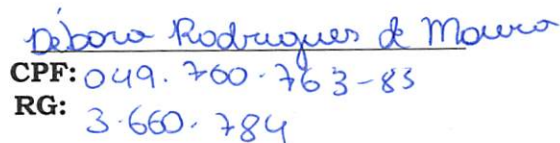 Débora Rodrigues de Moura
CPF: 049.760.763-83
RG: 3.660.784